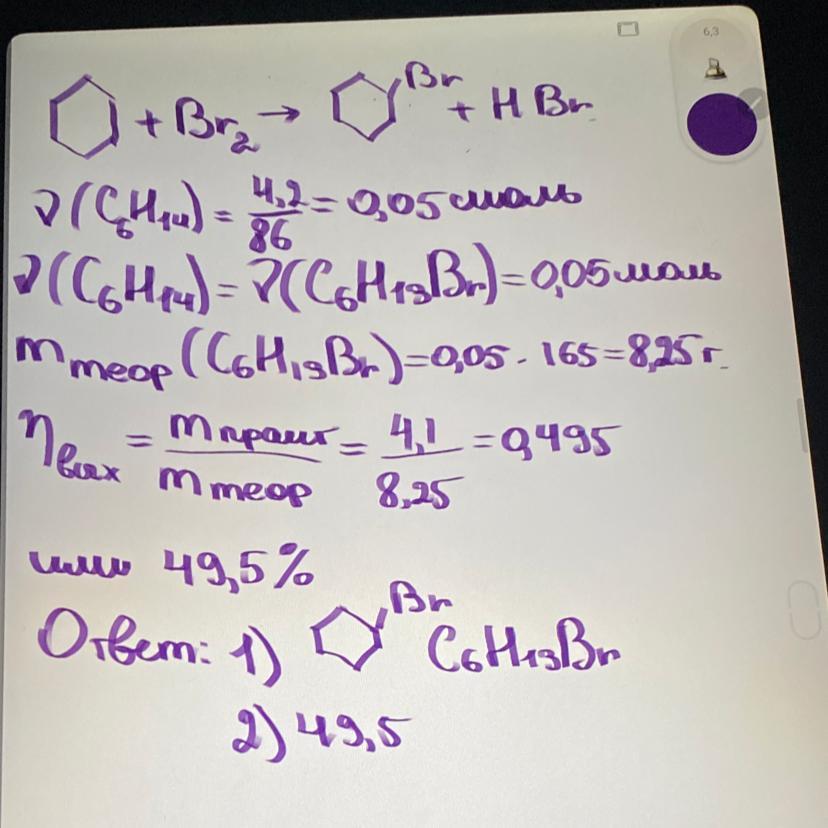 6,3
+ Br₂ → Br + HBr
ν(C₆H₁₄) = 4,2/86 = 0,05 моль
ν(C₆H₁₄) = ν(C₆H₁₃Br) = 0,05 моль
m теор (C₆H₁₃Br) = 0,05 · 165 = 8,25 г.
η вых = m практ / m теор = 4,1/8,25 = 0,495
или 49,5%
Ответ: 1) Br C₆H₁₃Br
2) 49,5